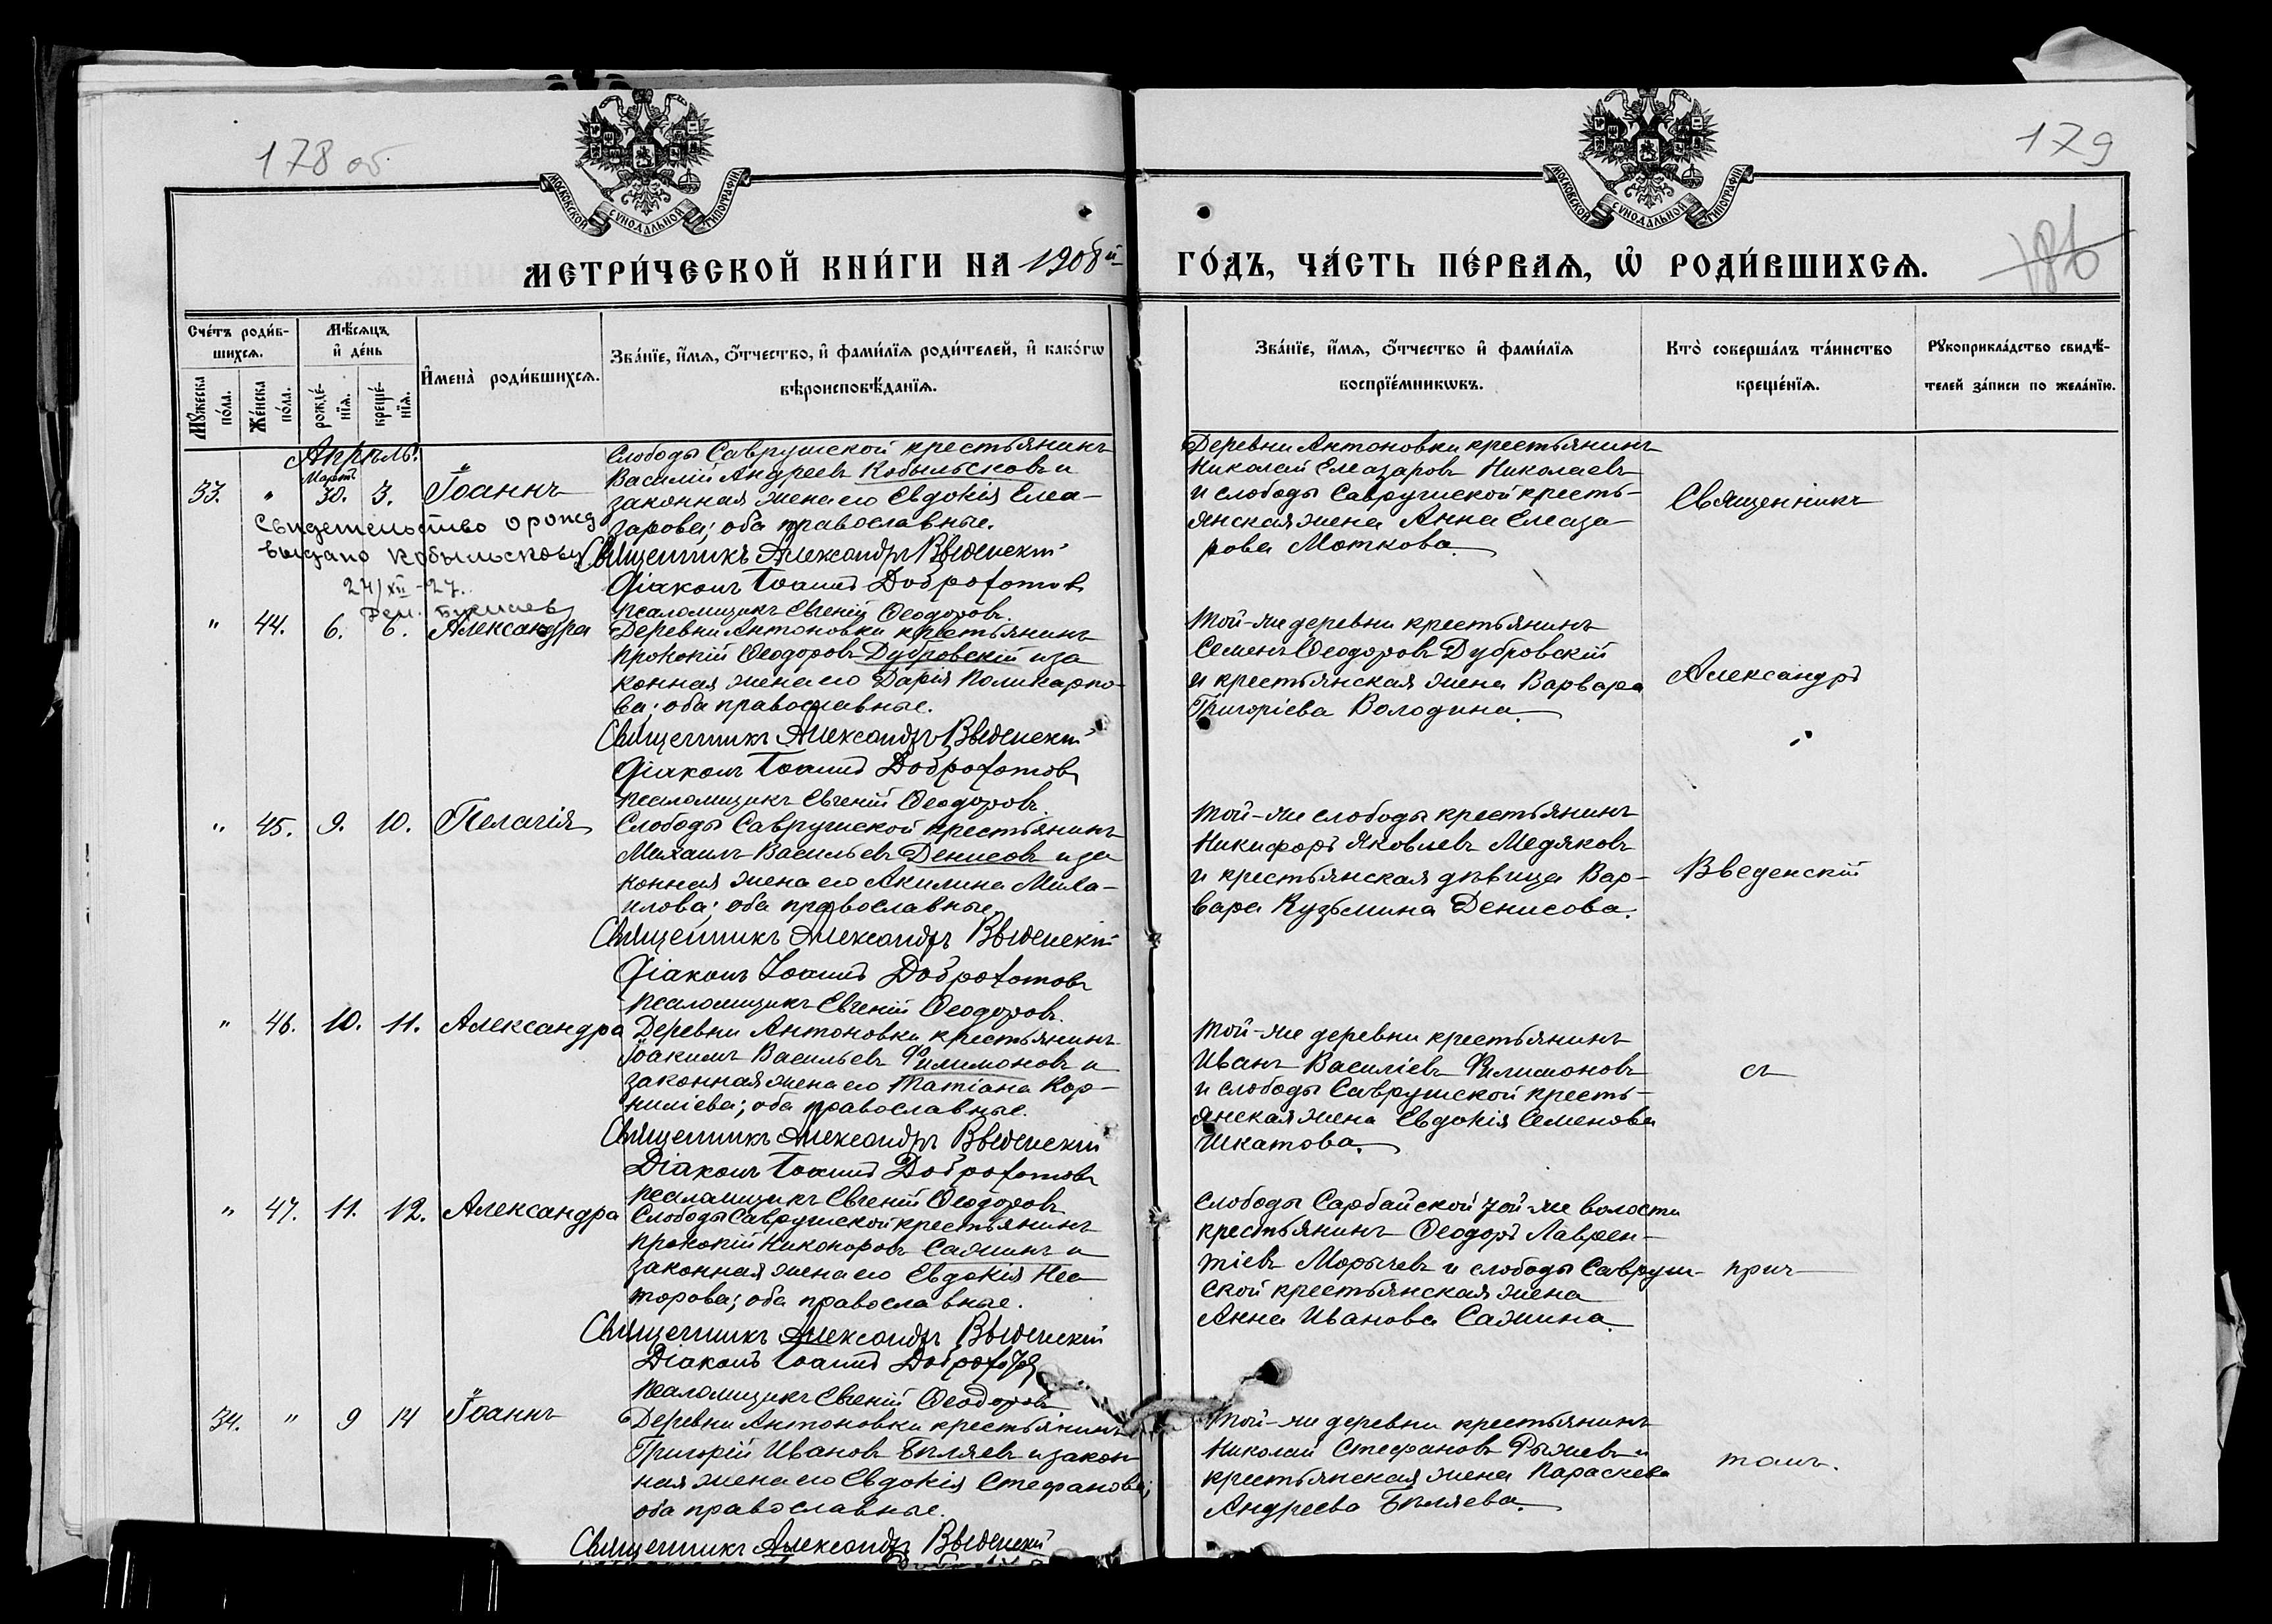 178 об
179
186
МОСКОВСКОЙ СУНОДАЛЬНОЙ ТИПОГРАФІИ
МОСКОВСКОЙ СУНОДАЛЬНОЙ ТИПОГРАФІИ
МЕТРИ́ЧЕСКОЙ КНИ́ГИ НА 1908й
ГО́ДЪ, ЧА́СТЬ ПЕ́РВАѦ, Ѡ҆ РОДИ́ВШИХСѦ.
Сче́тъ роди́в-
шихсѧ.
Мѣ́сѧцъ
и҆ де́нь
Мꙋ́жеска
по́ла.
Же́нска
по́ла.
рожде́-
нїѧ.
креще́-
нїѧ.
И҆мена̀ роди́вшихсѧ.
Зва́нїе, и҆́мѧ, ѻ҆́тчество, и҆ фами́лїѧ роди́телей, и҆ како́гѡ
вѣроисповѣ́данїѧ.
Зва́нїе, и҆́мѧ, ѻ҆́тчество и҆ фами́лїѧ
воспрїе́мникѡвъ.
Кто̀ соверша́лъ та́инство
креще́нїѧ.
Рꙋкоприкла́дство свидѣ́-
телей за́писи по жела́нїю.
Апрѣль.
Мартъ
33. " 30. 3. Іоаннъ
Слободы Саврушской крестьянинъ
Василій Андреевъ Кобыльсковъ и
законная жена его Евдокія Елеа-
зарова; оба православные.
Священникъ Александръ Введенскій
Діаконъ Іоаннъ Доброхотовъ
Псаломщикъ Евгеній Ѳеодоровъ.
Свидетельство о рожд
выдано Кобыльскову
24/XII-27.
Деревни Антоновки крестьянинъ
Николай Елеазаровъ Николаевъ
и слободы Саврушской кресть-
янская жена Анна Елеаза-
рова Моткова.
Священникъ
" 44. 6. 6. Александра
Деревни Антоновки крестьянинъ
Прокопій Ѳеодоровъ Дубровскій и за
конная жена его Дарія Поликарпо-
ва; оба православные.
Священникъ Александръ Введенскій
Діаконъ Іоаннъ Доброхотовъ
Псаломщикъ Евгеній Ѳеодоровъ.
Той-же деревни крестьянинъ
Семенъ Ѳеодоровъ Дубровскій
и крестьянская жена Варвара
Григоріева Володина.
Александръ
" 45. 9. 10. Пелагія
Слободы Саврушской крестьянинъ
Михаилъ Васильевъ Денисовъ и за
конная жена его Акилина Миха-
илова; оба православные.
Священникъ Александръ Введенскій
Діаконъ Іоаннъ Доброхотовъ
Псаломщикъ Евгеній Ѳеодоровъ.
Той-же слободы крестьянинъ
Никифоръ Яковлевъ Медяковъ
и крестьянская дѣвица Вар-
вара Кузьмина Денисова.
Введенскій
" 46. 10. 11. Александра
Деревни Антоновки крестьянинъ
Іоакимъ Васильевъ Филимоновъ и
законная жена его Татіана Кор-
ниліева; оба православные.
Священникъ Александръ Введенскій
Діаконъ Іоаннъ Доброхотовъ
Псаломщикъ Евгеній Ѳеодоровъ
Той-же деревни крестьянинъ
Иванъ Василіевъ Филимоновъ
и слободы Саврушской кресть-
янская жена Евдокія Семенова
Шкатова.
съ
" 47. 11. 12. Александра
Слободы Саврушской крестьянинъ
Прокопій Никоноровъ Сажинъ и
законная жена его Евдокія Нес-
торова; оба православные.
Священникъ Александръ Введенскій
Діаконъ Іоаннъ
Псаломщикъ Евгеній Ѳеодоровъ
Слободы Сарбайской той-же волости
крестьянинъ Ѳеодоръ Лаврен-
тіевъ Морычевъ и слободы Савруш-
ской крестьянская жена
Анна Иванова Сажина.
прич-
34. " 9 14 Іоаннъ
Деревни Антоновки крестьянинъ
Григорій Ивановъ Бѣляевъ и закон
ная жена его Евдокія Стефанова;
оба православные.
Священникъ Александръ Введенскій
Той-же деревни крестьянинъ
Николай Стефановъ Рыжевъ и
крестьянская жена Параскева
Андреева Бѣляева.
томъ.